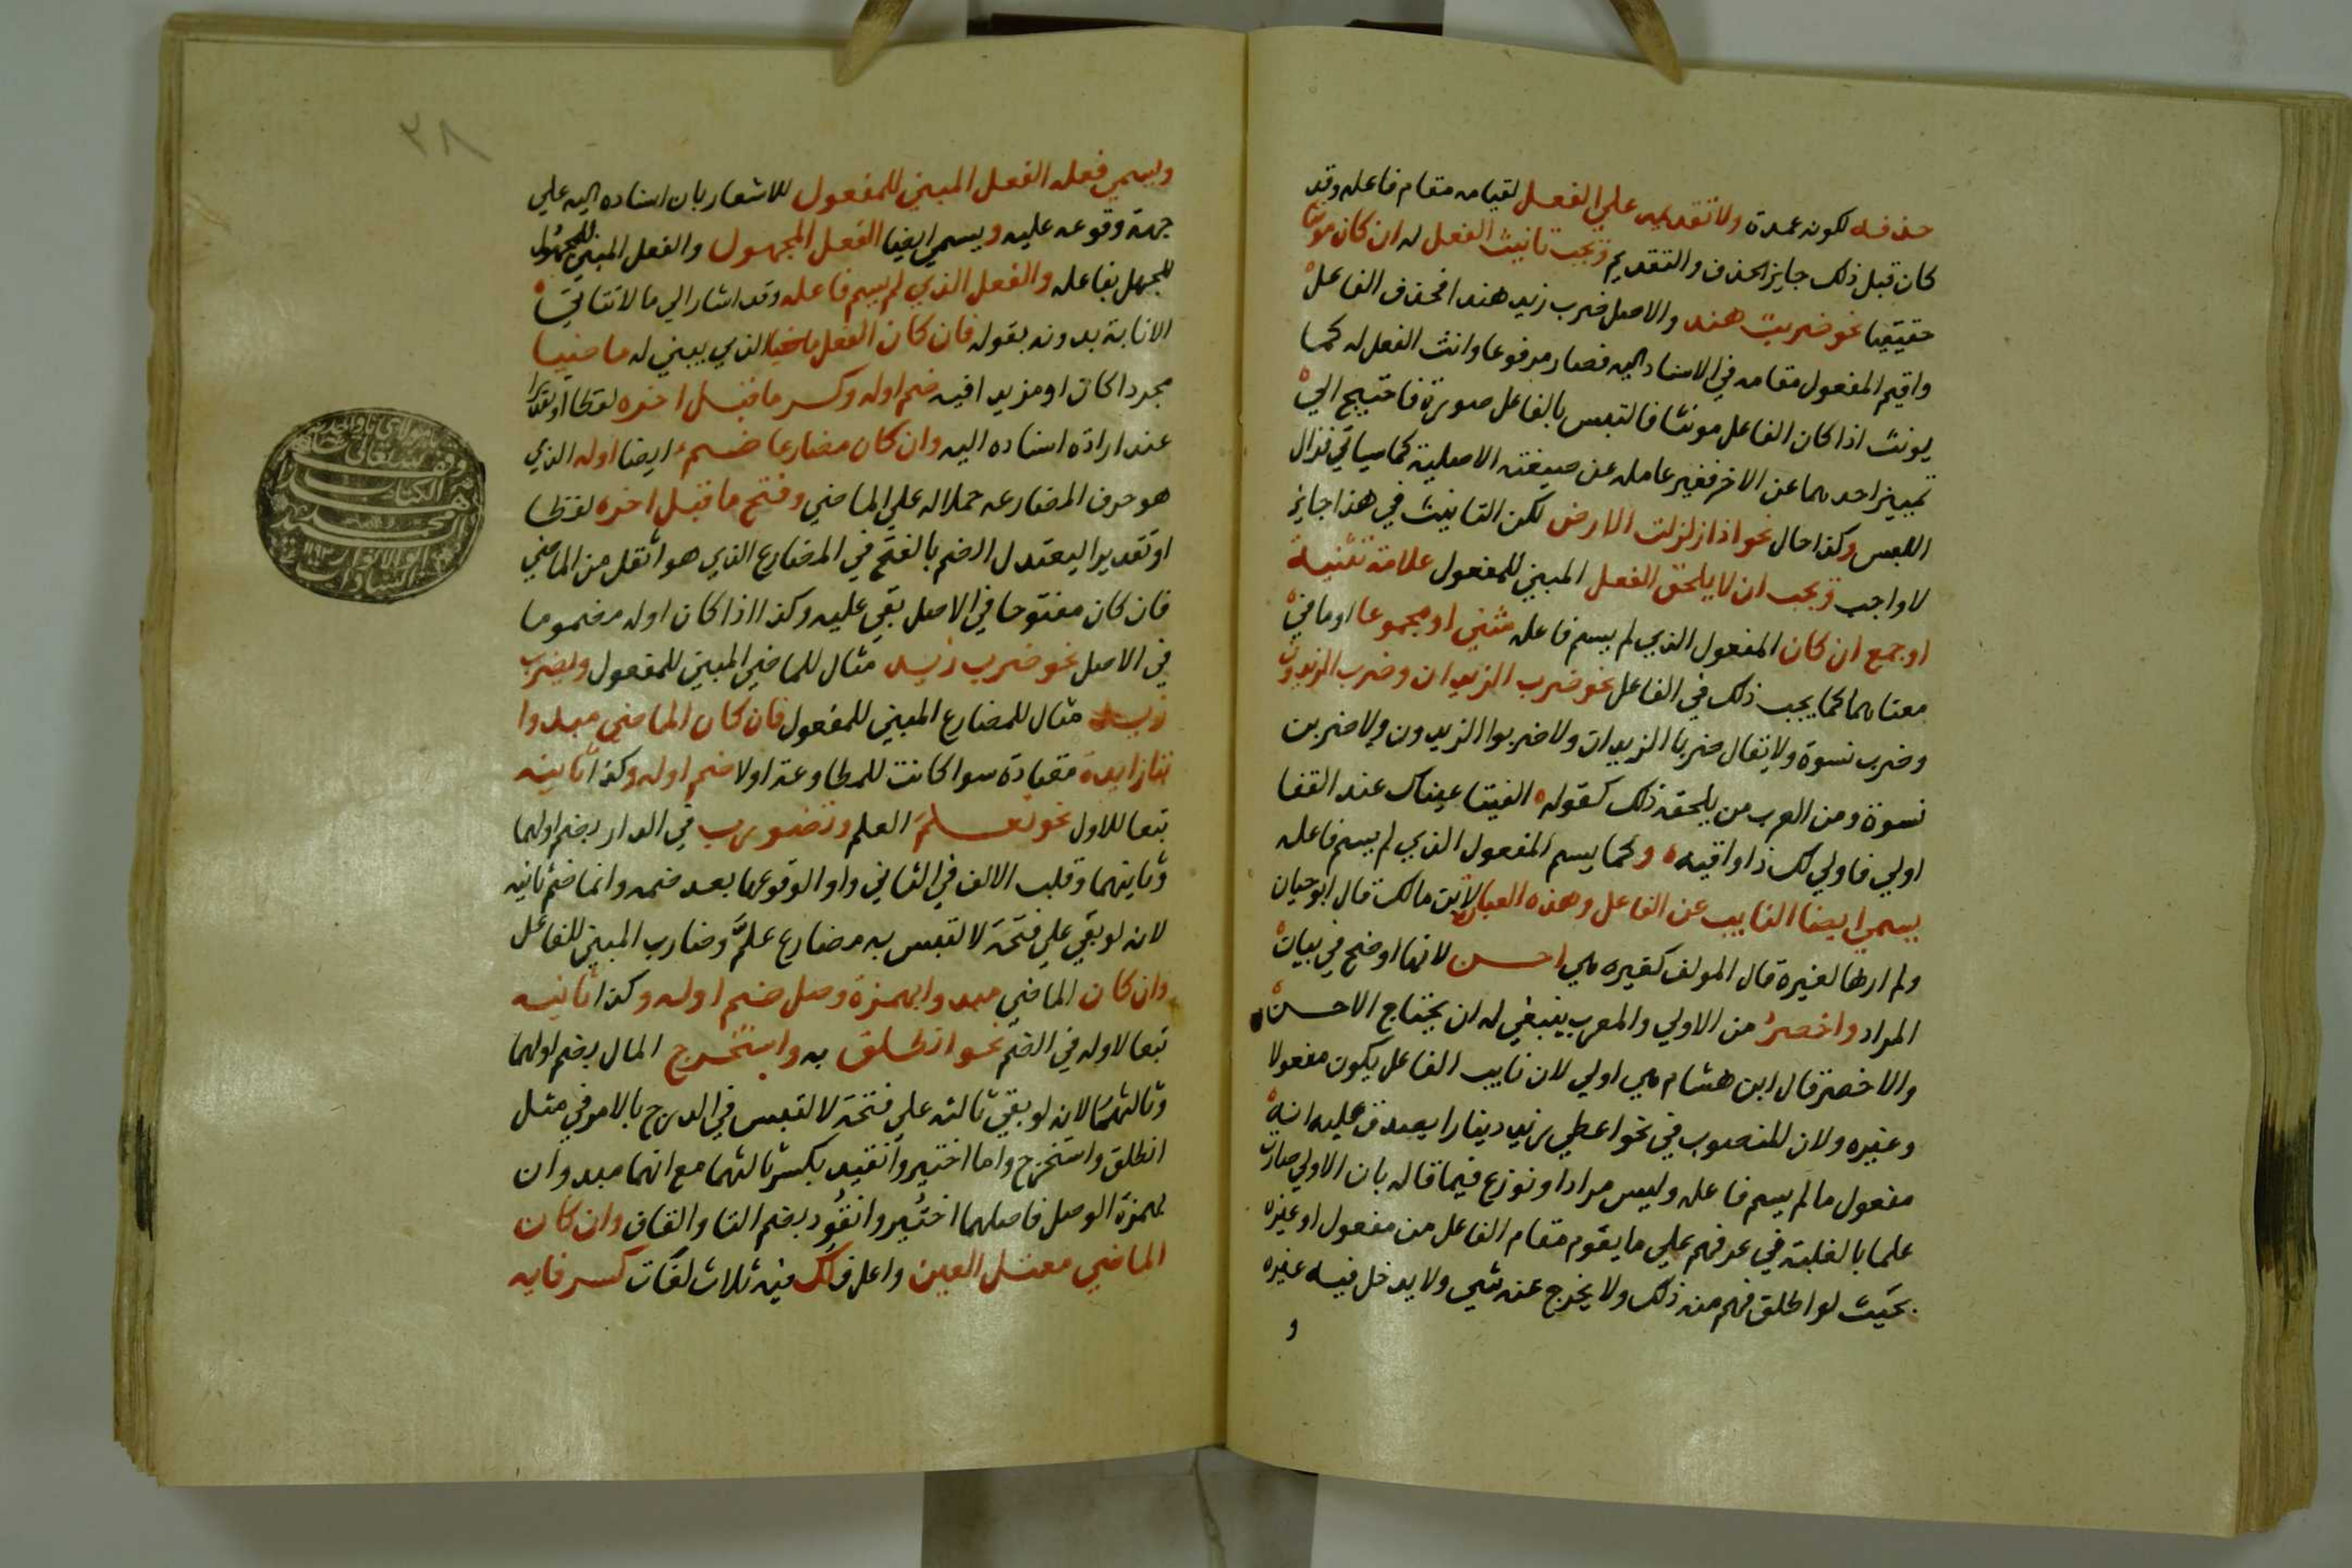 حذفه لكونه عمدة ولا تقديمه علي الفعل لقيامه مقام فاعله وقد
كان قبل ذلك جايز الحذف والتقديم ويجب تانيث الفعل له ان كان مونثا
حقيقيا نحو ضربت هند والاصل ضرب زيد هندا فحذف الفاعل
واقيم المفعول مقامه في الاسناد اليه فصار مرفوعا وانث الفعل له كما
يونث اذا كان الفاعل مونثا فالتبس بالفاعل صورة فاحتيج الي
تمييز احدهما عن الاخر فغير عامله عن صيغته الاصلية كما سياتي فزال
اللبس وكذا حال نحو اذا زلزلت الارض لكن التانيث في هذا جايز
لا واجب ويجب ان لا يلحق الفعل المبني للمفعول علامة تثنية
او جمع ان كان المفعول الذي لم يسم فاعله مثني او مجموعا او ما في
معناهما كما يجب ذلك في الفاعل نحو ضرب الزيدان وضرب الزيدون
وضرب نسوة ولا يقال ضربا الزيدان ولا ضربوا الزيدون ولا ضربن
نسوة ومن العرب من يلحقه ذلك كقوله الفيتا عيناك عند القفا
اولي فاولي لك ذا واقيه وكما يسم المفعول الذي لم يسم فاعله
يسمي ايضا النايب عن الفاعل وهذه العبارة لابن مالك قال ابو حيان
ولم ارها لغيره قال المولف كغيره هي احسن لانها اوضح في بيان
المراد واخصر من الاولي والمعرب ينبغي له ان يحتاج الاحسن
والاخصر قال ابن هشام هي اولي لان نايب الفاعل يكون مفعولا
وغيره ولان المنصوب في نحو اعطي زيد دينارا يصدق عليه انه
مفعول ما لم يسم فاعله وليس مرادا ونوزع فيما قاله بان الاولي صارت
علما بالغلبة في عرفهم علي ما يقوم مقام الفاعل من مفعول او غيره
بحيث لو اطلق فهم منه ذلك ولا يخرج عنه شي ولا يدخل فيه غيره
و
٣٨
ويسمي فعله الفعل المبني للمفعول للاشعار بان اسناده اليه علي
جهة وقوعه عليه ويسمي ايضا الفعل المجهول والفعل المبني للمجهول
للجهل بفاعله والفعل الذي لم يسم فاعله وقد اشار الي ما لا تتاتي
الانابة بدونه بقوله فان كان الفعل ماضيا الذي يبني له ماضيا
مجردا كان او مزيدا فيه ضم اوله وكسر ما قبل اخره لفظا او تقديرا
عند ارادة اسناده اليه وان كان مضارعا ضم ايضا اوله الذي
هو حرف المضارعه حملا له علي الماضي وفتح ما قبل اخره لفظا
او تقديرا ليعتدل الضم بالفتح في المضارع الذي هو اثقل من الماضي
فان كان مفتوحا في الاصل بقي عليه وكذا اذا كان اوله مضموما
في الاصل نحو ضرب زيد مثال للماضي المبني للمفعول ويضرب
زيد مثال للمضارع المبني للمفعول فان كان الماضي مبدوا
بتا زايدة معتادة سوا كانت للمطاوعة او لا ضم اوله وكذا ثانيه
تبعا للاول نحو تعلم العلم وتضورب في الدار بضم اولهما
وثانيهما وقلب الالف في الثاني واوا لوقوعها بعد ضمه وانما ضم ثانيه
لانه لو بقي علي فتحة لالتبس به مضارع علم وضارب المبني للفاعل
وان كان الماضي مبدوا بهمزة وصل ضم اوله وكذا ثانيه
تبعا لاوله في الضم نحو انطلق به واستخرج المال بضم اولهما
وثالثهما لانه لو بقي ثالثه علي فتحة لالتبس في الدرج بالامر في مثل
انطلق واستخرج واما اختير وانقيد بكسر ثالثهما مع انهما مبدوان
بهمزة الوصل فاصلهما اختير وانقود بضم التا والقاف وان كان
الماضي معتل العين واعل فلك فيه ثلاث لغات كسر فايه